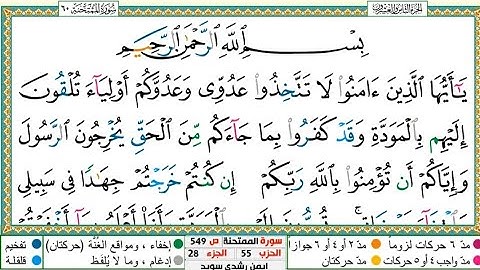 الجزء الثامن والعشرون سورة الممتحنة ٦٠
بِسْمِ ٱللَّهِ ٱلرَّحْمَٰنِ ٱلرَّحِيمِ
يَٰٓأَيُّهَا ٱلَّذِينَ ءَامَنُوا۟ لَا تَتَّخِذُوا۟ عَدُوِّى وَعَدُوَّكُمْ أَوْلِيَآءَ تُلْقُونَ
إِلَيْهِم بِٱلْمَوَدَّةِ وَقَدْ كَفَرُوا۟ بِمَا جَآءَكُم مِّنَ ٱلْحَقِّ يُخْرِجُونَ ٱلرَّسُولَ
وَإِيَّاكُمْ أَن تُؤْمِنُوا۟ بِٱللَّهِ رَبِّكُمْ إِن كُنتُمْ خَرَجْتُمْ جِهَٰدًا فِى سَبِيلِى
مد ٦ حركات لزوماً مد ٢ أو ٤ أو ٦ جوازاً سورة الممتحنة ص 549 إخفاء، ومواقع الغُنَّة (حركتان) تفخيم
مد واجب ٤ أو ٥ حركات مد حركتان الحزب 55 الجزء 28 إدغام، وما لا يُلفَظ قلقلة
أيمن رشدي سويد